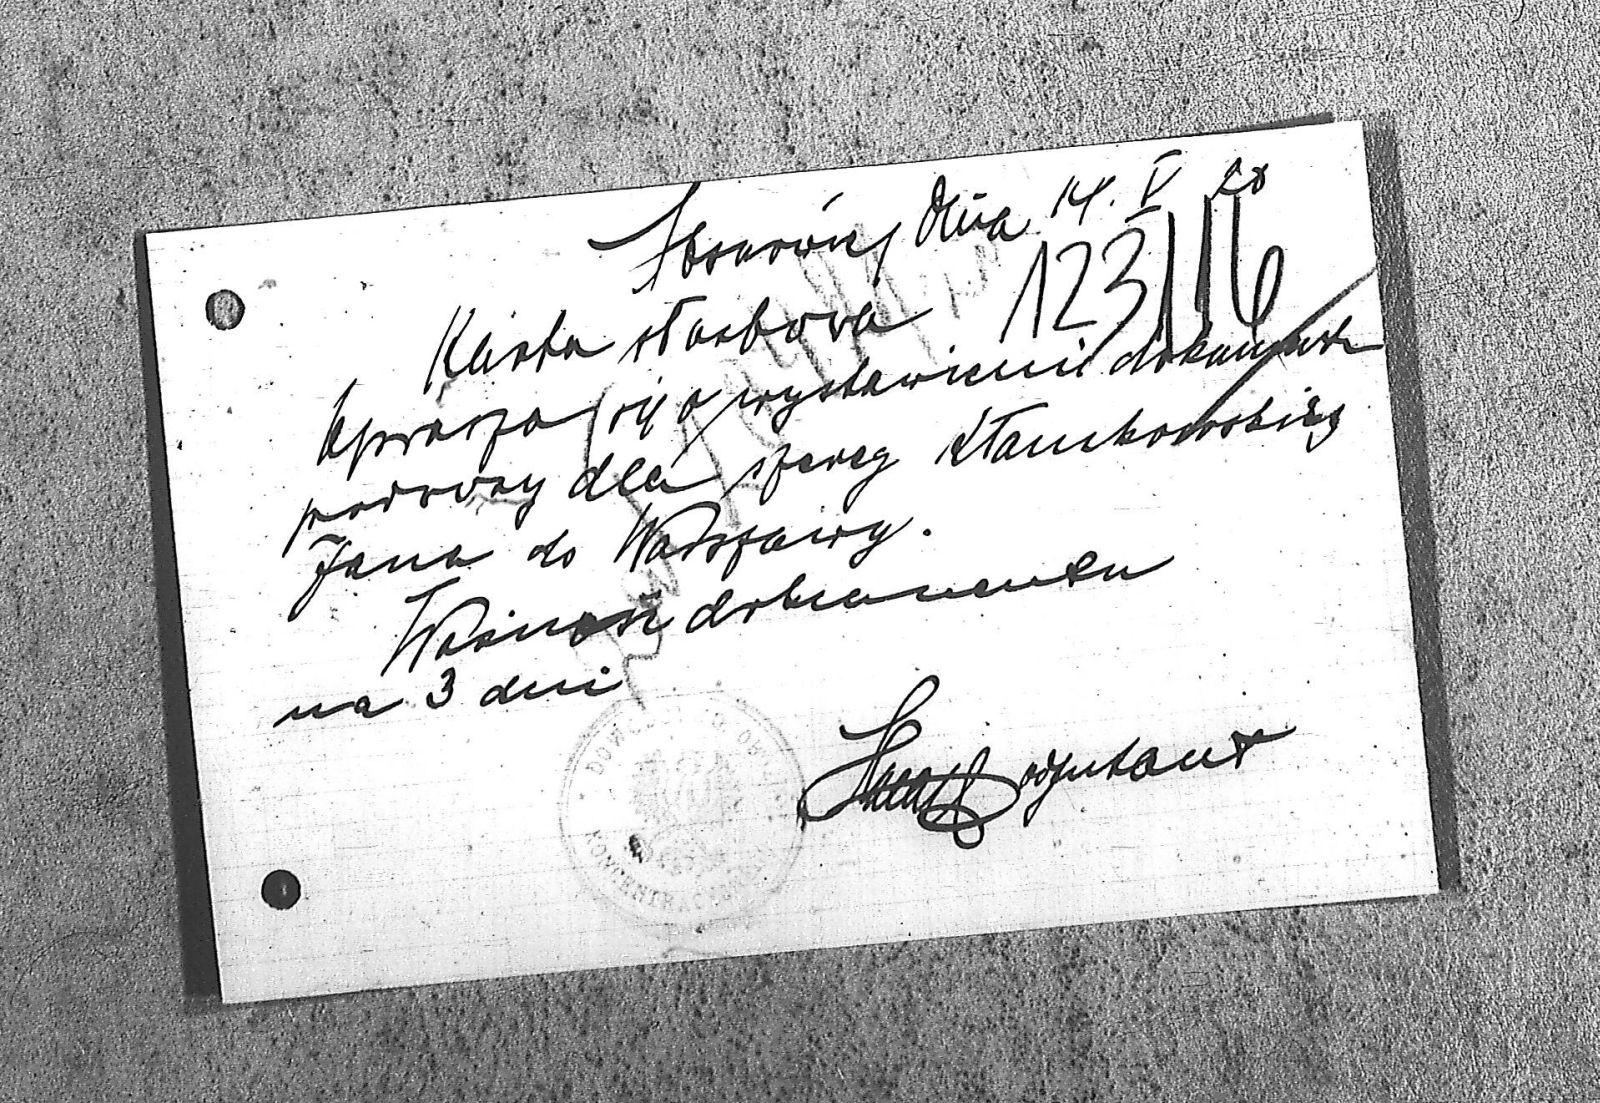 dnia 14. V 20
123/16
Karta służbowa
Uprasza się o wystawienie dokumentu
podróży dla szereg
Jana do Warszawy.
Ważność dokumentu
na 3 dni
adjutant
DOWÓDZTWO OBOZU
KONCENTRACYJNEGO